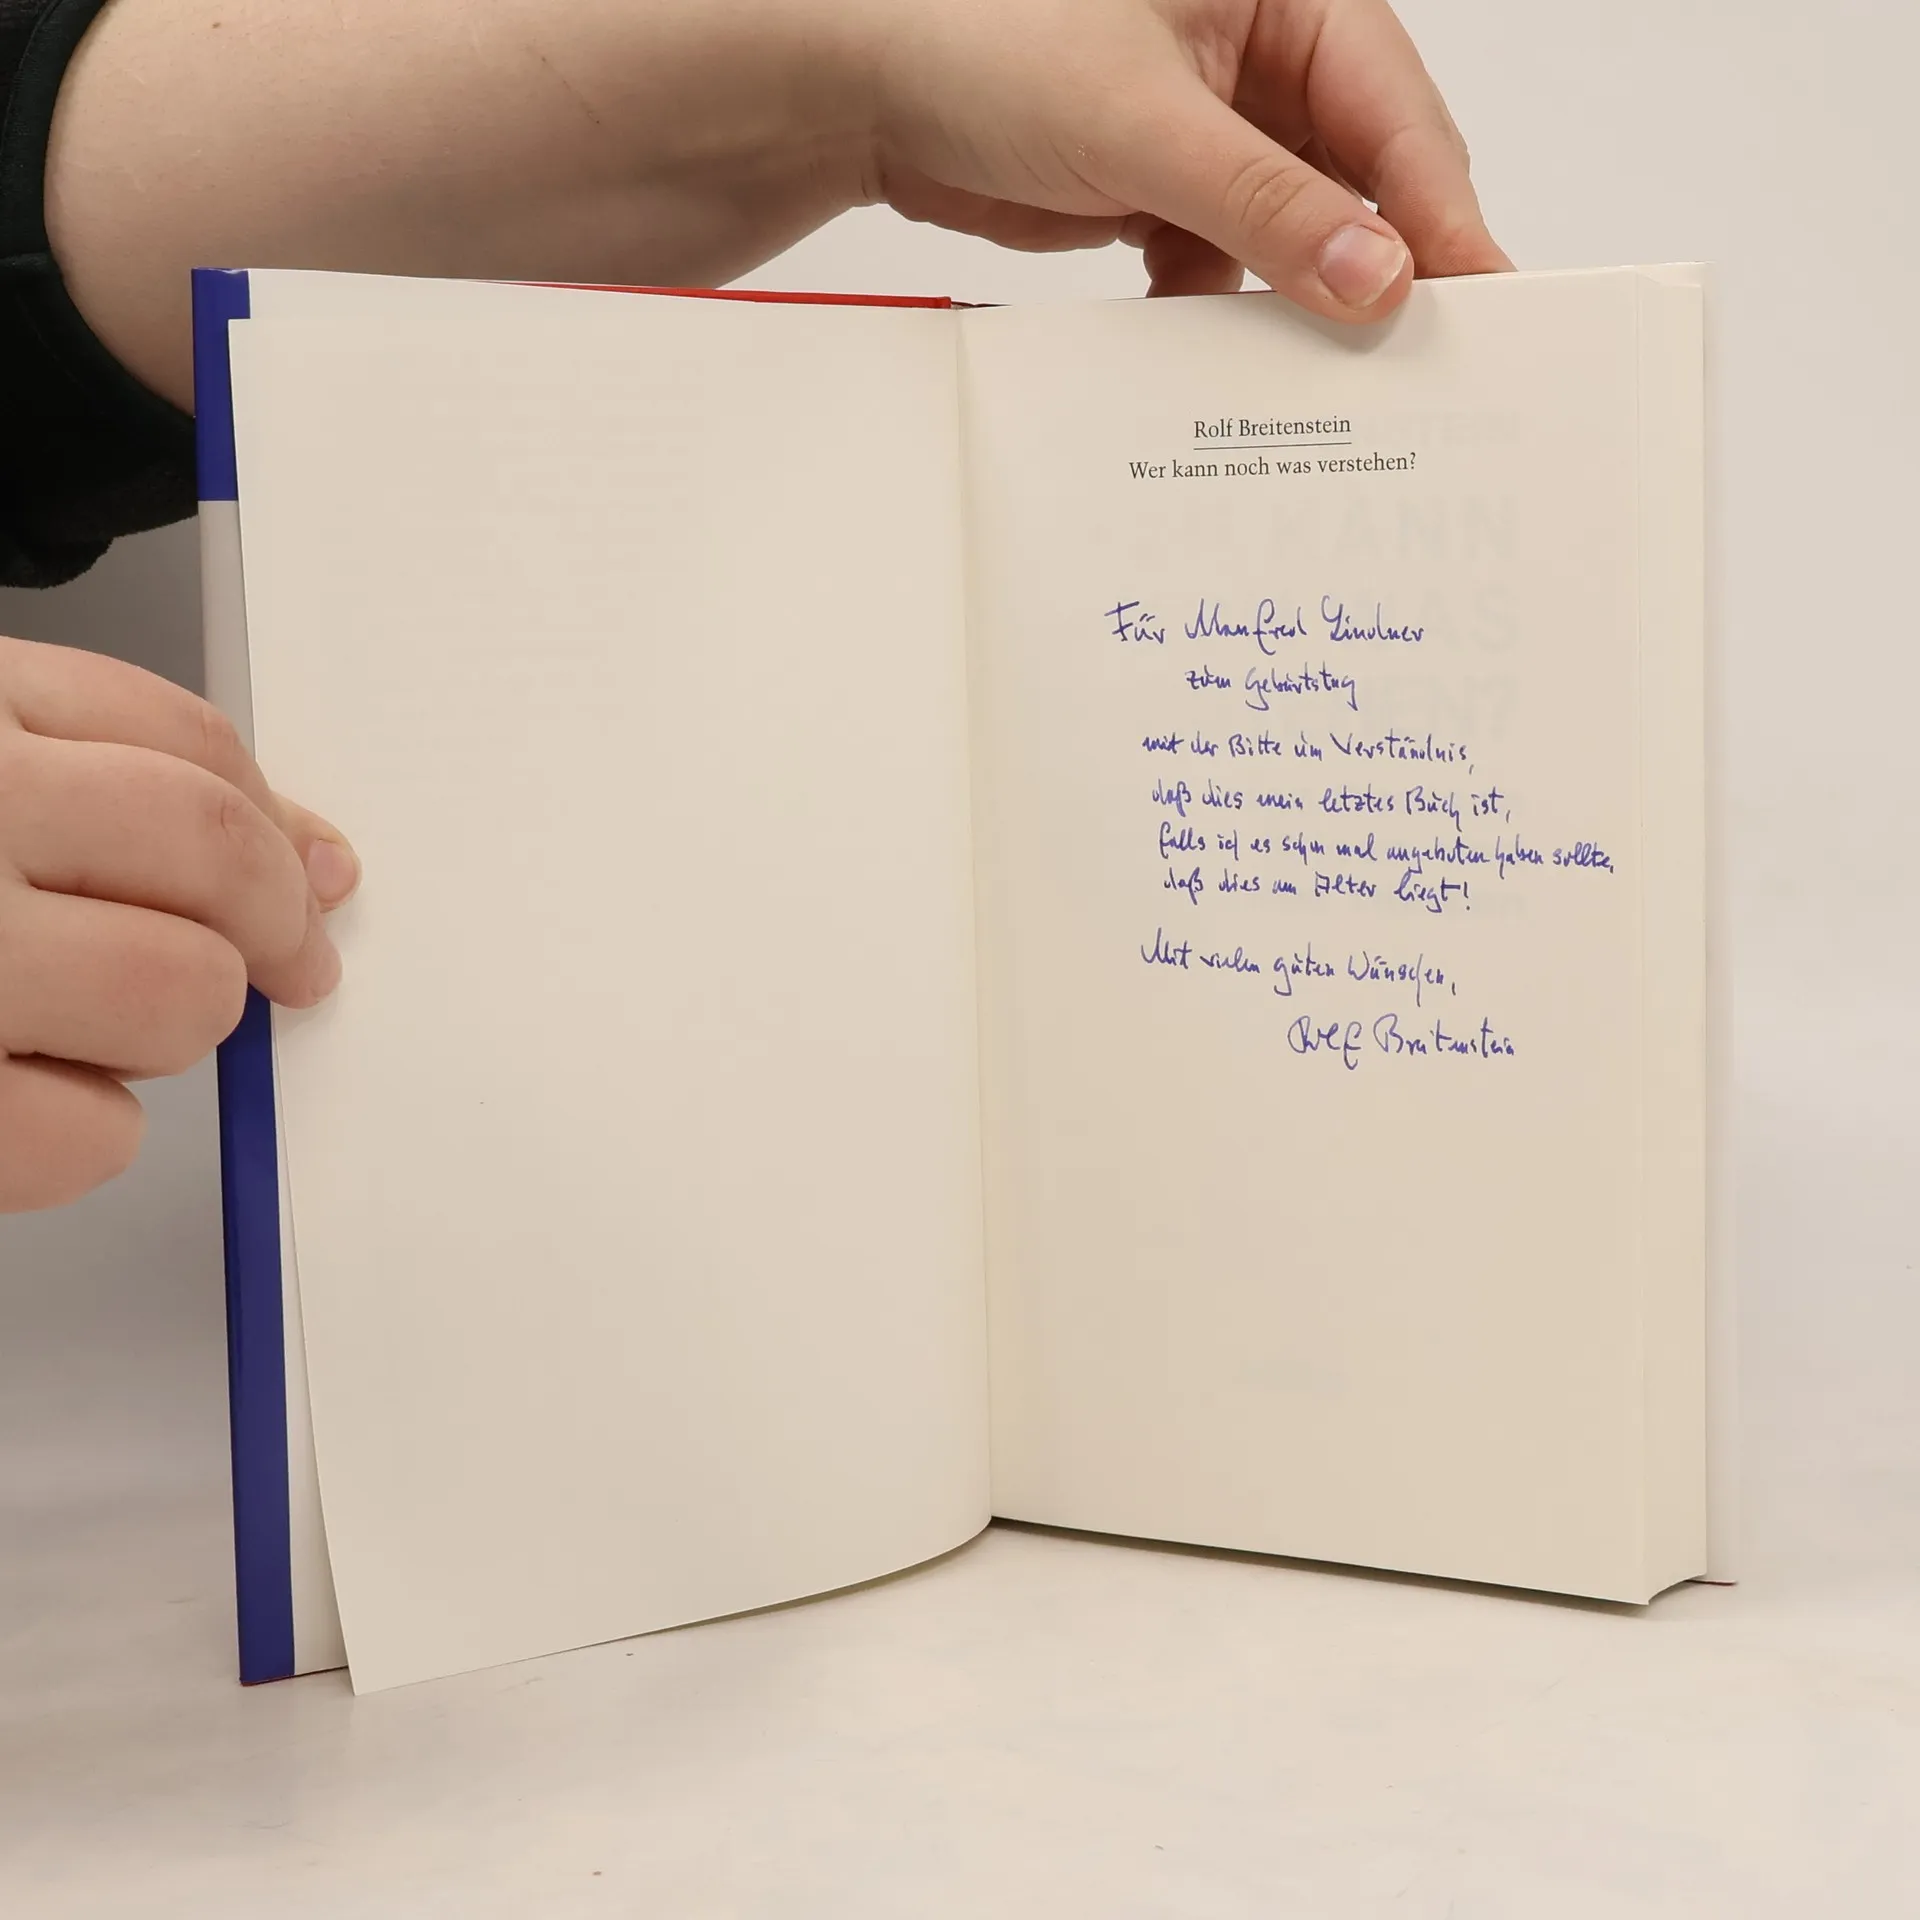 Rolf Breitenstein
Wer kann noch was verstehen?
Für Manfred Lindner
zum Geburtstag
mit der Bitte um Verständnis,
daß dies mein letztes Buch ist,
falls ich es schon mal angeboten haben sollte,
daß dies am Alter liegt!
Mit vielen guten Wünschen,
Rolf Breitenstein